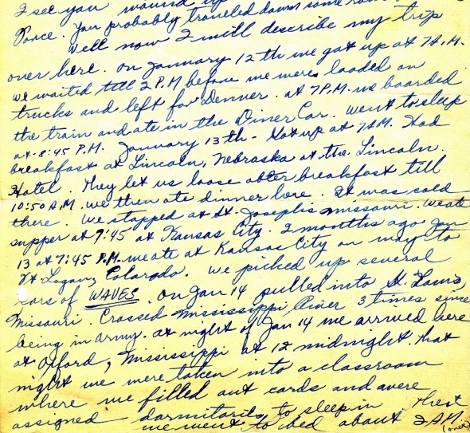 I see you wound up
Ponce. You probably traveled down some
Well now I will describe my trip
over here. On January 12th we got up at 7 A.M.
We waited till 2 P.M before we were loaded on
trucks and left for Denver. at 7 P.M. we boarded
the train and ate in the Diner Car. Went to sleep
at 8:45 P.M. January 13th - Got up at 7 A.M. Had
breakfast at Lincoln, Nebraska at the Lincoln
Hotel. They let us loose after breakfast till
10:50 A.M. we then ate dinner here. It was cold
there. We stopped at St. Josephs Missouri. We ate
supper at 7:45 at Kansas City. 2 months ago Jan
13 at 7:45 P.M. we ate at Kansas City on way to
Ft Logan, Colorado. We picked up several
cars of WAVES. On Jan 14 pulled into St. Louis,
Missouri. Crossed Mississippi River 3 times since
being in army. at night of Jan 14 we arrived here
at Oxford, Mississippi at 12 midnight. that
night we were taken into a classroom
where we filled out cards and were
assigned darmitorits to sleep in
we went to bed about 2 A.M.
(over)